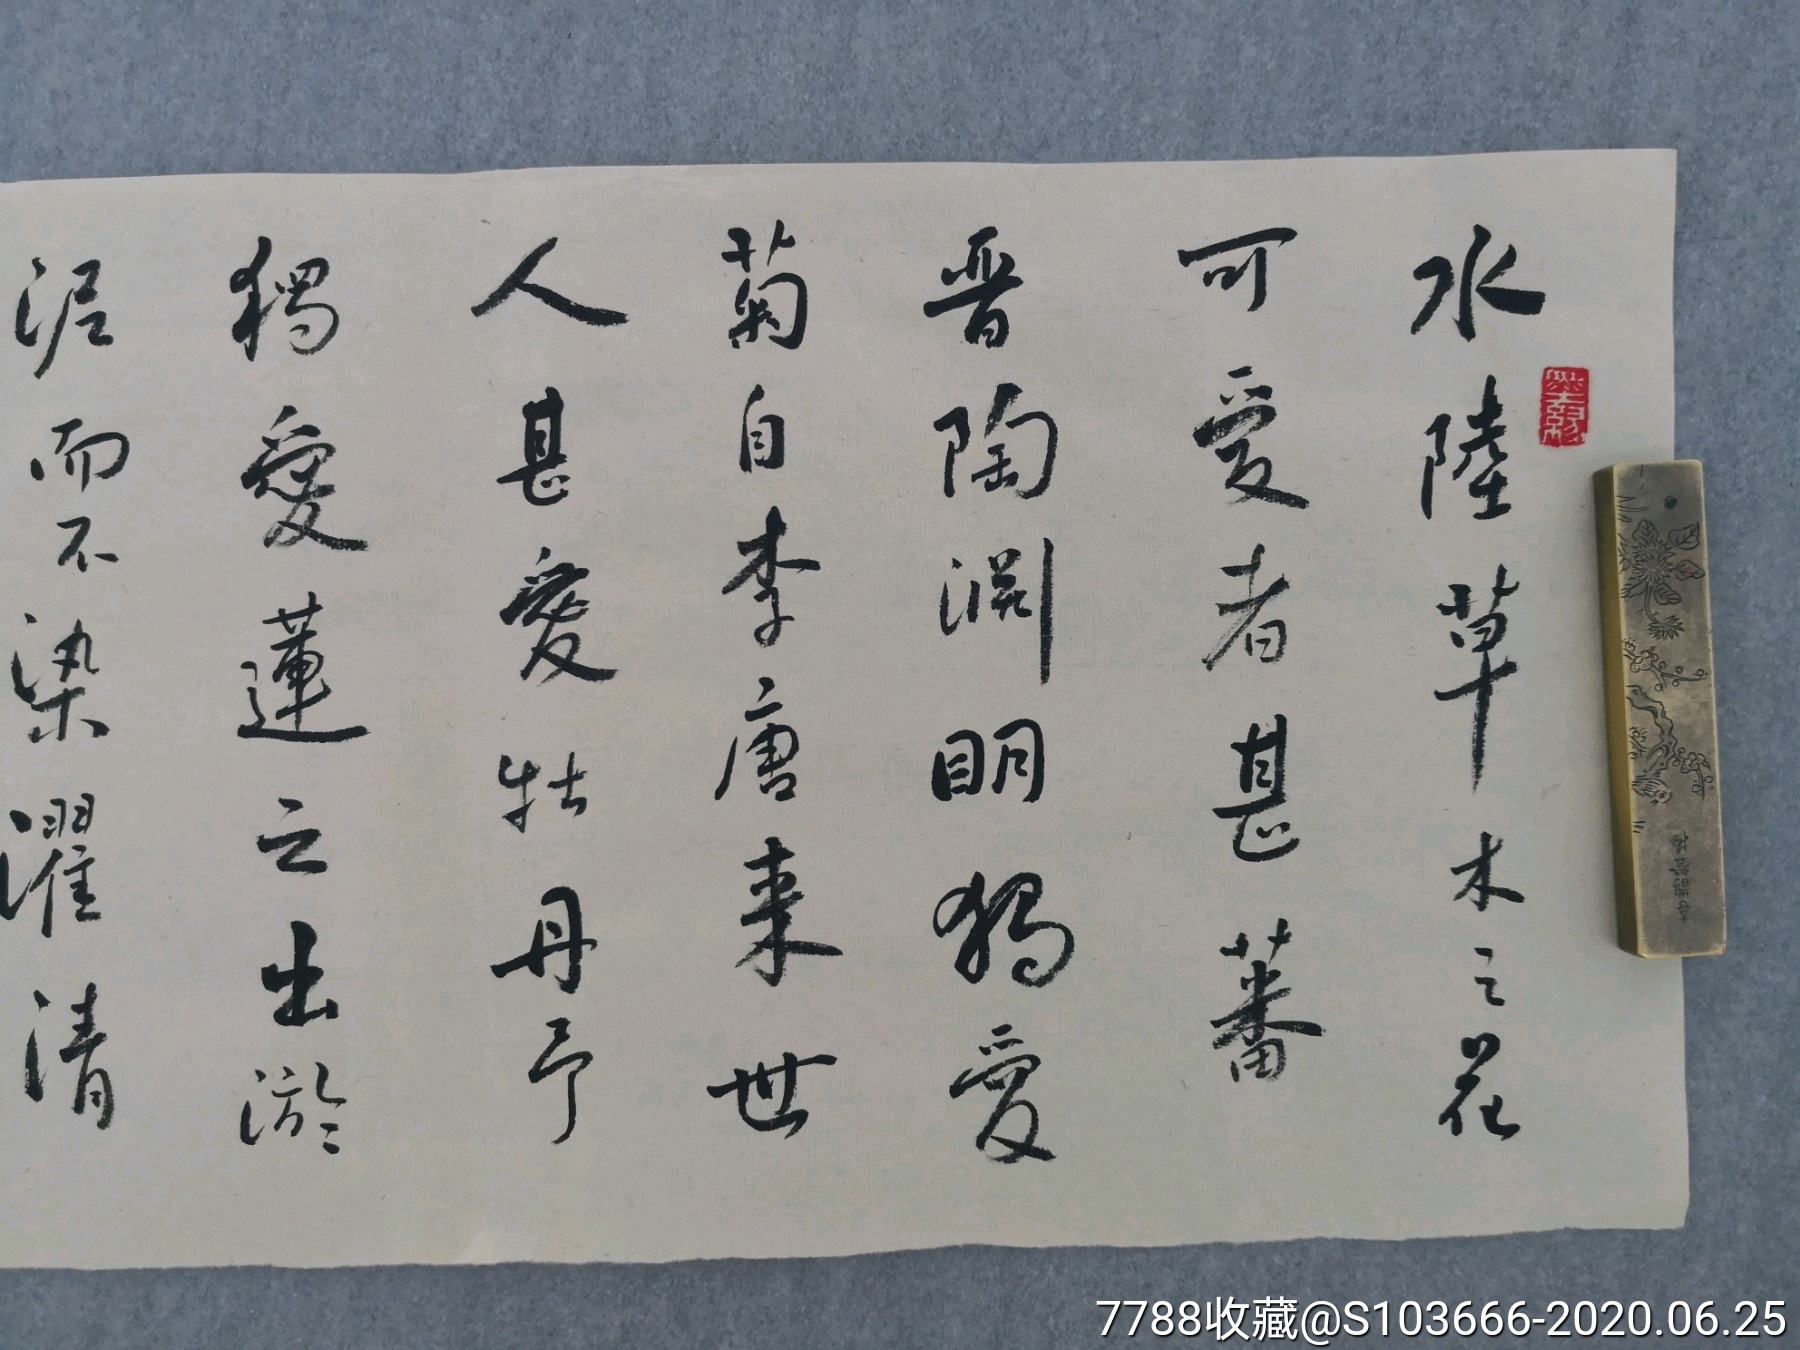 水陸草木之花
可愛者甚蕃
晋陶淵明獨愛
菊自李唐来世
人甚愛牡丹予
獨愛蓮之出淤
泥而不染濯清
7788收藏@S103666-2020.06.25